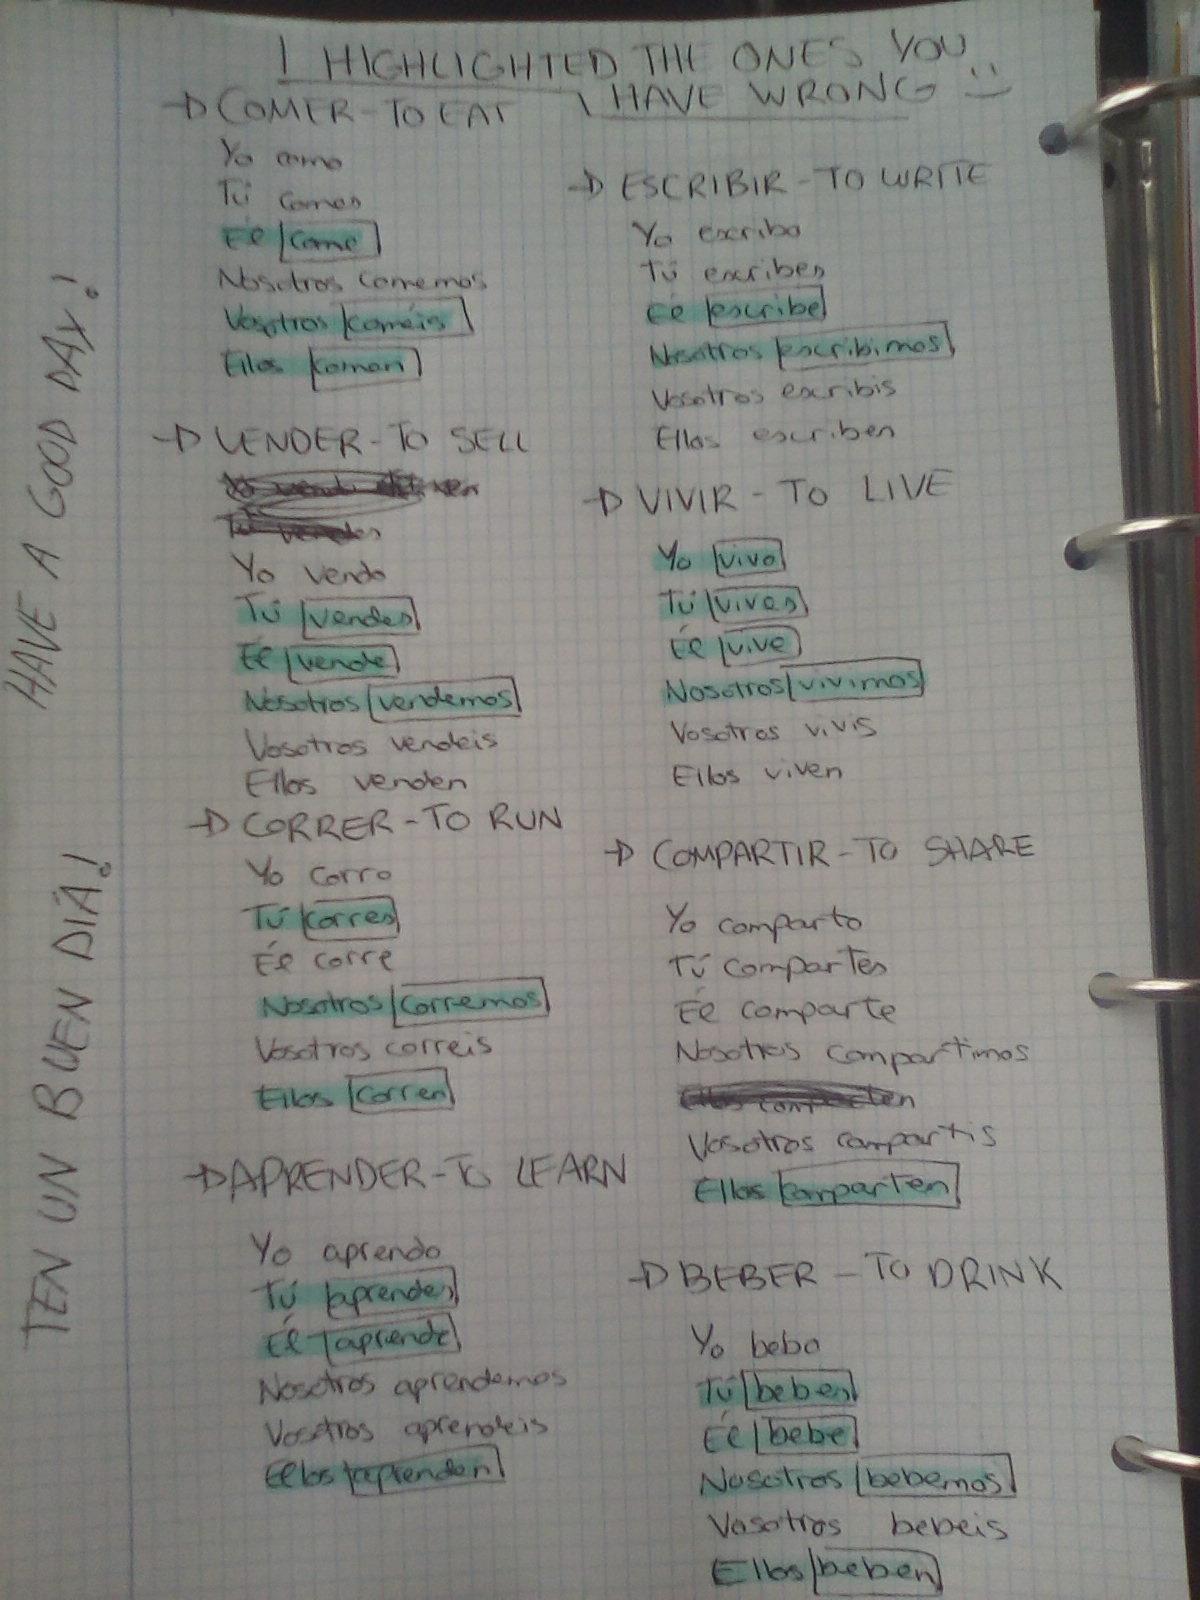 I HIGHLIGHTED THE ONES YOU
HAVE WRONG :)
→ COMER - TO EAT
Yo como
Tú comes
Él come
Nosotros comemos
Vosotros coméis
Ellos comen
→ VENDER - TO SELL
Yo vendo
Tú vendes
Él vende
Nosotros vendemos
Vosotros vendeis
Ellos venden
→ CORRER - TO RUN
Yo corro
Tú corres
Él corre
Nosotros corremos
Vosotros correis
Ellos corren
→ APRENDER - TO LEARN
Yo aprendo
Tú aprendes
Él aprende
Nosotros aprendemos
Vosotros aprendeis
Ellos aprenden
→ ESCRIBIR - TO WRITE
Yo escribo
Tú escribes
Él escribe
Nosotros escribimos
Vosotros escribis
Ellos escriben
→ VIVIR - TO LIVE
Yo vivo
Tú vives
Él vive
Nosotros vivimos
Vosotros vivis
Ellos viven
→ COMPARTIR - TO SHARE
Yo comparto
Tú compartes
Él comparte
Nosotros compartimos
Vosotros compartis
Ellos comparten
→ BEBER - TO DRINK
Yo bebo
Tú bebes
Él bebe
Nosotros bebemos
Vosotros bebeis
Ellos beben
HAVE A GOOD DAY!
TEN UN BUEN DÍA!